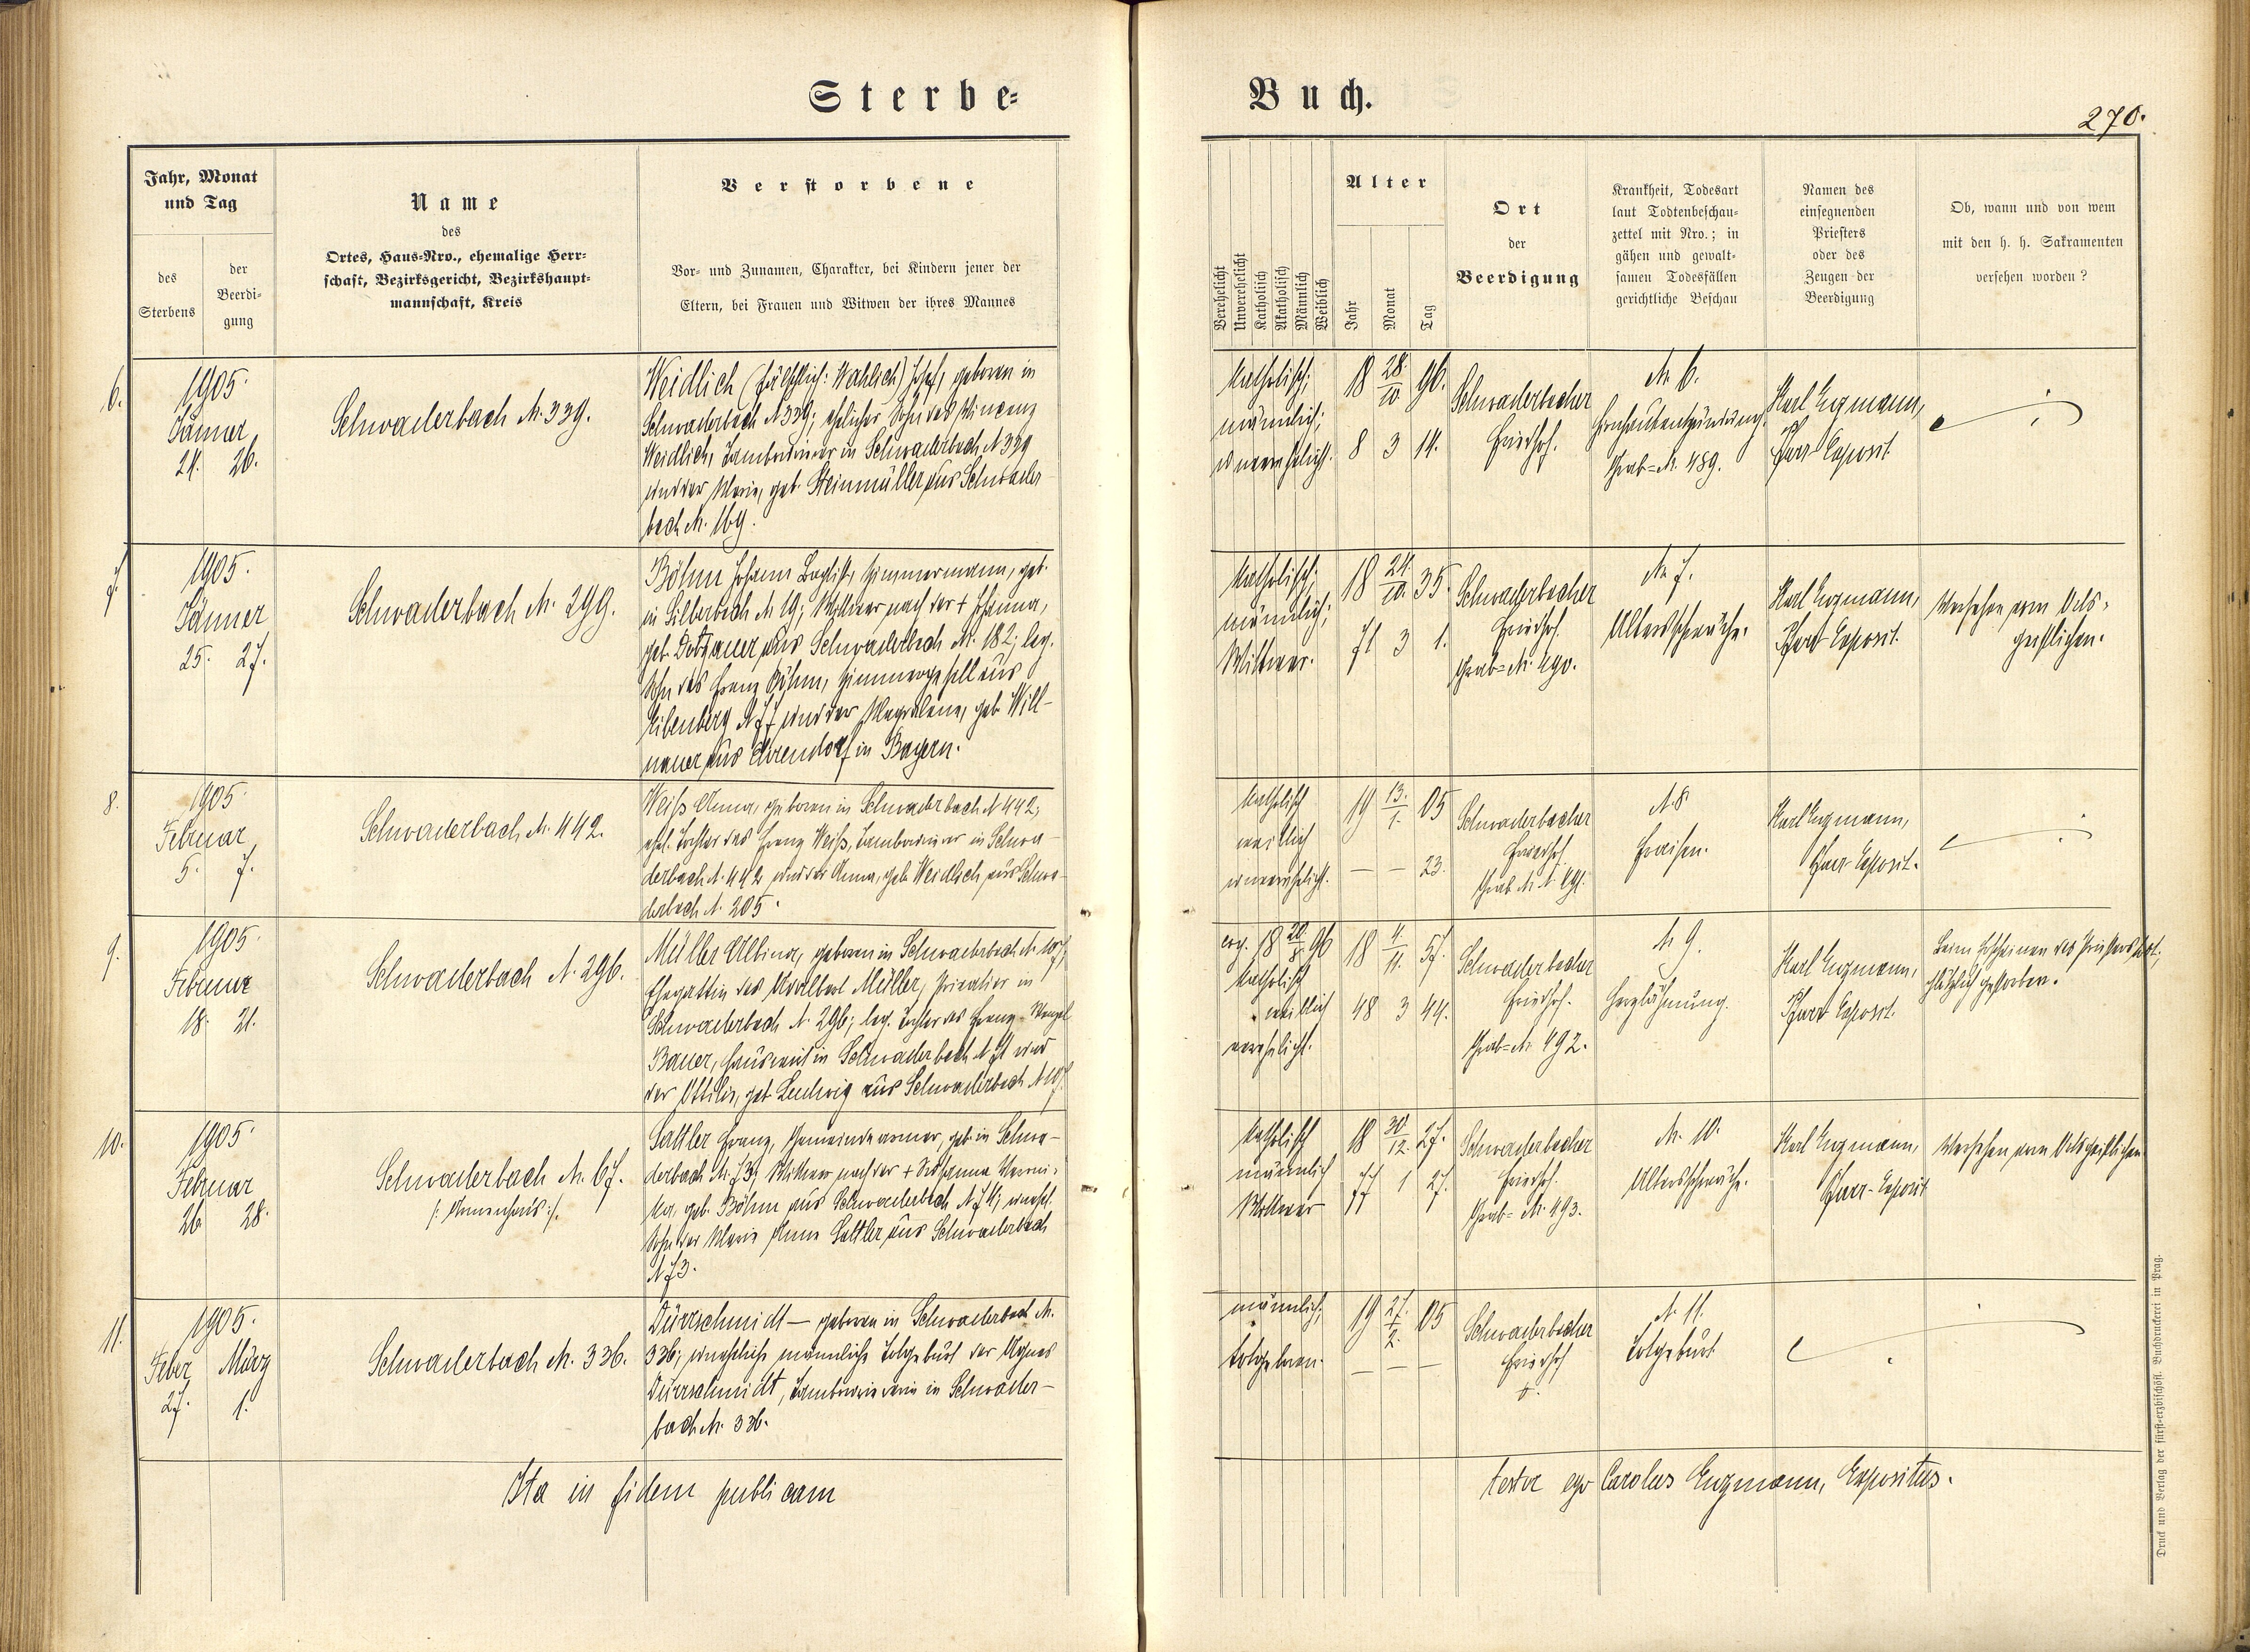 Sterbe-
Buch.
270.
Jahr, Monat
und Tag
des
Sterbens
der
Beerdi-
gung
Name
des
Ortes, Haus-Nro., ehemalige Herr-
schaft, Bezirksgericht, Bezirkshaupt-
mannschaft, Kreis
Verstorbene
Vor- und Zunamen, Charakter, bei Kindern jener der
Eltern, bei Frauen und Witwen der ihres Mannes
Verehelicht
Unverehelicht
Katholisch
Akatholisch
Männlich
Weiblich
Alter
Jahr
Monat
Tag
Ort
der
Beerdigung
Krankheit, Todesart
laut Todtenbeschau-
zettel mit Nro.; in
gähen und gewalt-
samen Todesfällen
gerichtliche Beschau
Namen des
einsegnenden
Priesters
oder des
Zeugen der
Beerdigung
Ob, wann und von wem
mit den h. h. Sakramenten
versehen worden?
6.
1905.
Jänner
24. 26.
Schwaderbach N. 339.
Weidlich (fälschlich: Wahlich) Josef, geboren in
Schwaderbach N 339; ehelicher Sohn des Vincenz
Weidlich, Tambourierer in Schwaderbach N 339
und der Marie, geb. Steinmüller aus Schwader-
bach N. 169.
Katholisch;
männlich;
unverehelicht.
18 28./10. 96.
8 3 14.
Schwaderbacher
Friedhof.
N. 6.
Hirnhautentzündung.
Grab-N. 489.
Karl Engmann,
Pfarr-Exposit.
7.
1905.
Jänner
25. 27.
Schwaderbach N. 299.
Böhm Johann Baptist, Zimmermann, geb.
in Silberbach N 19; Wittwer nach der + Johanna,
geb. Dotzauer aus Schwaderbach N. 182; leg.
Sohn des Franz Böhm, Zimmergesell aus
Eibenberg N 77 und der Magdalena, geb. Will-
nauer aus Ahrendorf in Bayern.
Katholisch;
männlich;
Wittwer.
18 24./10. 35.
71 3 1.
Schwaderbacher
Friedhof.
Grab-N. 490.
N. 7.
Altersschwäche.
Karl Engmann,
Pfarr-Exposit.
Versehen vom Orts-
geistlichen.
8.
1905.
Februar
5. 7.
Schwaderbach N. 442.
Weiß Anna, geboren in Schwaderbach N 442;
ehel. Tochter des Franz Weiß, Tambourierer in Schwa-
derbach N. 442 und der Anna, geb. Weidlich aus Schwa-
derbach N. 205.
Katholisch
weiblich
unverehelicht.
19 13./1. 05
— — 23.
Schwaderbacher
Friedhof
Grab N. 491.
N. 8.
Fraisen.
Karl Engmann,
Pfarr-Exposit.
9.
1905.
Februar
18. 21.
Schwaderbach N. 296.
Müller Albina, geboren in Schwaderbach N. 107;
Ehegattin des Adalbert Müller, Privatier in
Schwaderbach N. 296; leg. Tochter des Franz Wenzel
Bauer, Hausmeist in Schwaderbach N 71 und
der Ottilia, geb. Ludwig aus Schwaderbach N 107.
cop. 18 20/8 96
Katholisch
weiblich
verehelicht.
18 4./11. 57.
48 3 14.
Schwaderbacher
Friedhof.
Grab-N. 492.
N. 9.
Herzlähmung.
Karl Engmann,
Pfarr-Exposit.
Beim Erscheinen des Priesters
plötzlich gestorben.
10.
1905.
Februar
26. 28.
Schwaderbach N. 67.
/: Armenhaus :/.
Sattler Franz, Gemeindearmer, geb. in Schwa-
derbach N. 73; Wittwer nach der + Johanna Veroni-
ka, geb. Böhm aus Schwaderbach N 74; unehel.
Sohn der Marie Anna Sattler aus Schwaderbach
N 73.
Katholisch
männlich
Wittwer
18 30./12. 27.
77 1 27.
Schwaderbacher
Friedhof.
Grab-N. 493.
N. 10.
Altersschwäche.
Karl Engmann,
Pfarr-Exposit
Versehen vom Ortsgeistlichen
11.
1905.
Feber März
27. 1.
Schwaderbach N. 336.
Dürrschmidt — geboren in Schwaderbach N.
336; uneheliche männliche Totgeburt der Agnes
Dürrschmidt, Tambouriererin in Schwader-
bach N. 336.
männlich;
totgeboren.
19 27./2. 05
— — —
Schwaderbacher
Friedhof
N. 11.
Totgeburt
Ita in fidem publicam
testor ego Carolus Engmann, Expositus.
Druck und Verlag der fürst-erzbischöfl. Buchdruckerei in Prag.